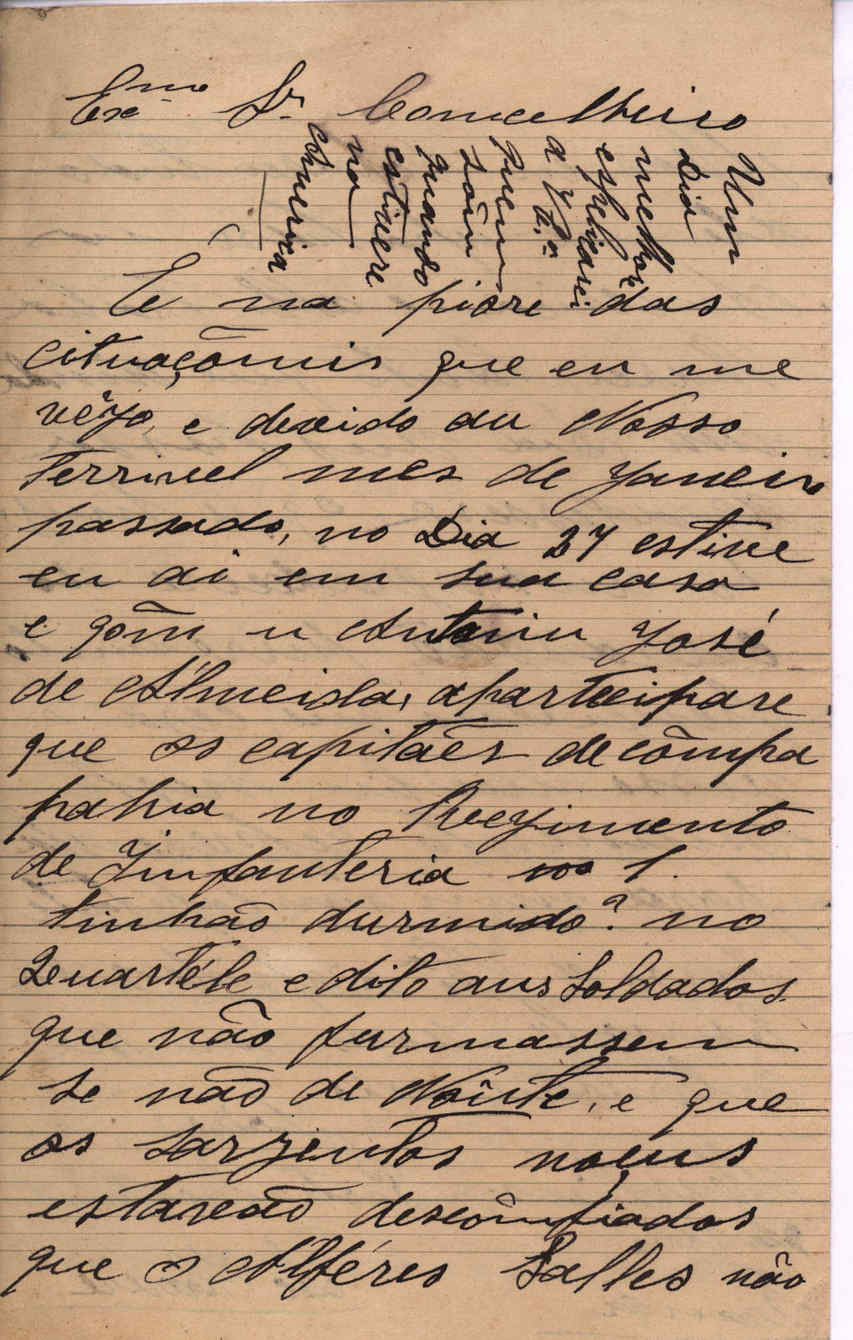 Exmo Sr. Comcelheiro
Um
Dia
melhore
esplicarei
a V. Ex.a
quem
sôin
quando
estivere
na
America
É na piore das
cituaçõmis que eu me
vêjo, e devido au Nosso
Terrivel mes de Janeiro
passado, no Dia 27 estive
eu ai em sua casa
e gõm u Antoniu José
de Almeida, aparteeipare
que os capitães de cõmpa
pahia no Regimento
de Infanteria no 1.
tinhão durmido? no
Quartéle e dito aus Soldados
que não furmassem
se não de Noite, e que
os sarzentos novus
estavão descõnfiados
que o Alféres Salles não